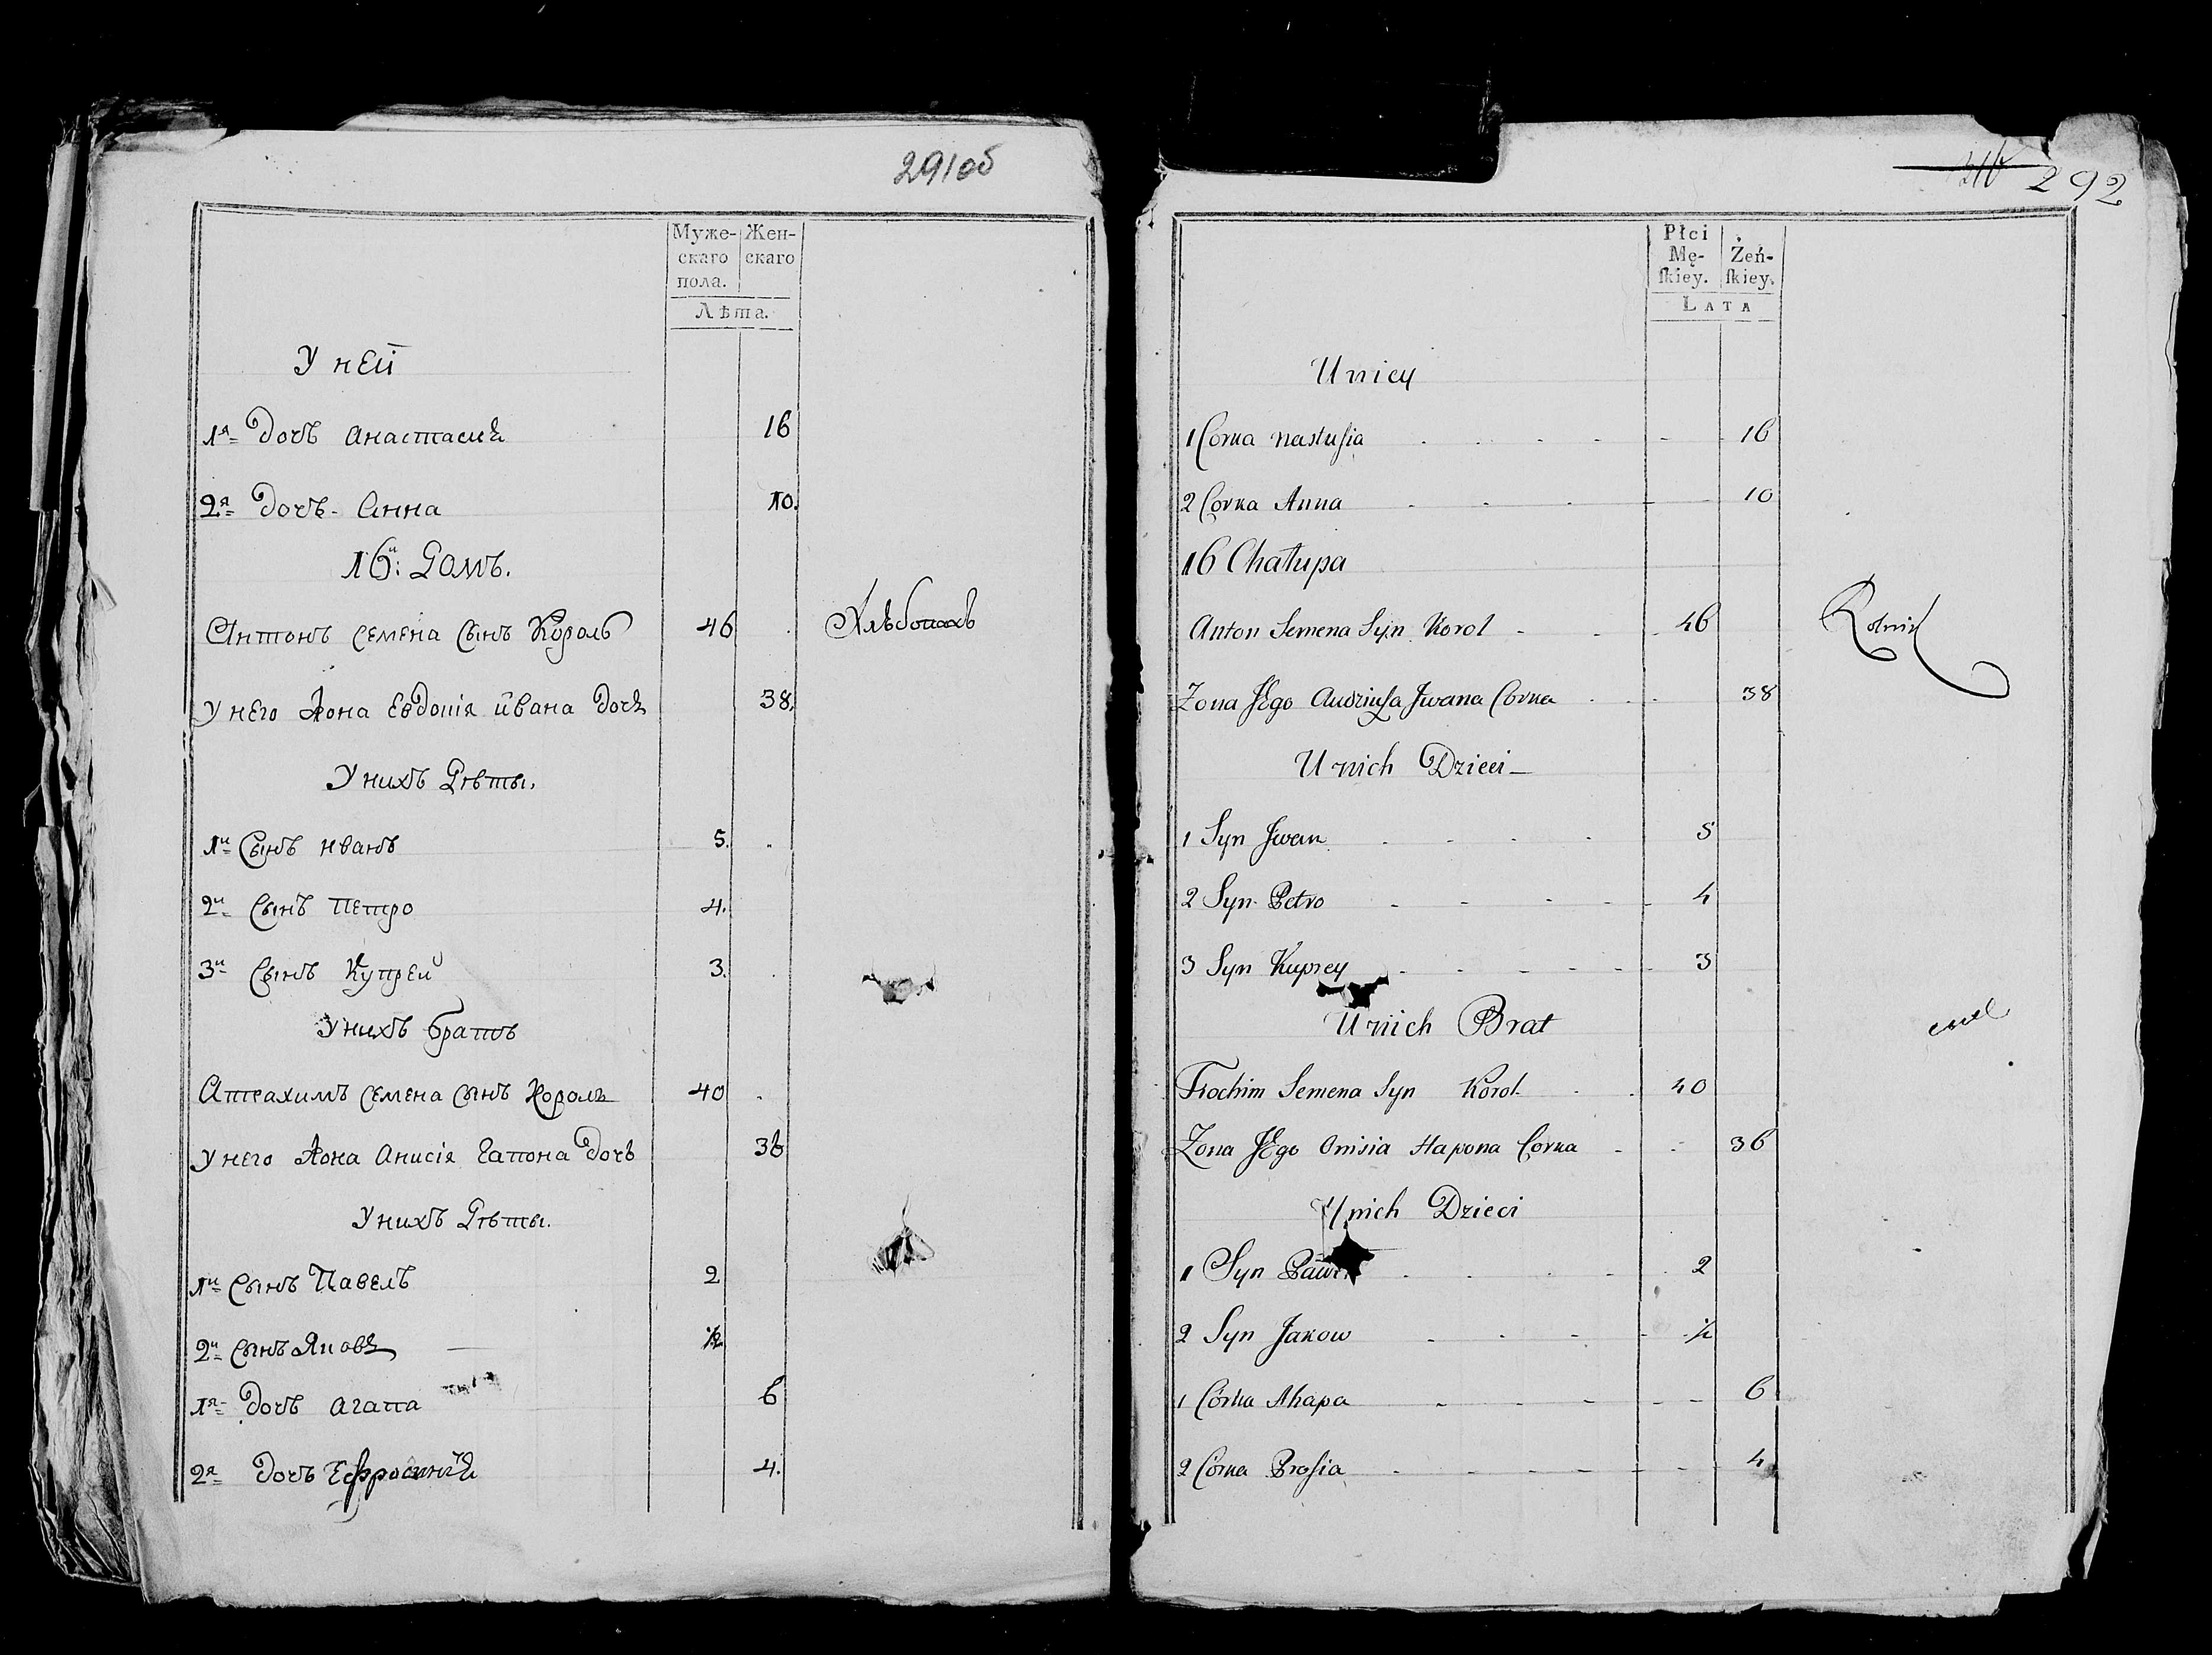 291 об
Муже- Жен-
скаго скаго
пола.
Лѣта.
У ней
1я Дочь Анастасия 16
2я Дочь Анна 10.
16й Домъ.
Антонъ Семена Сынъ Король 46 Хлѣбопашъ
У него Жона Евдокія Ивана Дочь 38.
У нихъ Дѣты.
1й Сынъ Иванъ 5.
2й Сынъ Петро 4.
3й Сынъ Купрей 3.
У нихъ братъ
Атрахимъ Семена Сынъ Король 40
У него Жона Анисія Гапона Дочь 36
У нихъ Дѣты.
1й Сынъ Павелъ 2
2й Сынъ Яковъ ½
1я Дочь Агапа 6
2я Дочь Ефросинія 4.
292
Płci
Mę- Żeń-
skiey. skiey.
LATA
U niey
1 Corka Nastusia 16
2 Corka Anna 10
16 Chałupa
Anton Semena Syn Korol 46 Rolnik
Zona JEgo Audziusa Jwana Corka 38
U nich Dzieci
1 Syn Jwan 5
2 Syn Petro 4
3 Syn Kuprey 3
U nich Brat
Trochim Semena Syn Korol 40
Zona JEgo Onisia Hapona Corka 36
U nich Dzieci
1 Syn 2
2 Syn Jakow ½
1 Córka Ahapa 6
2 Córka Prosia 4